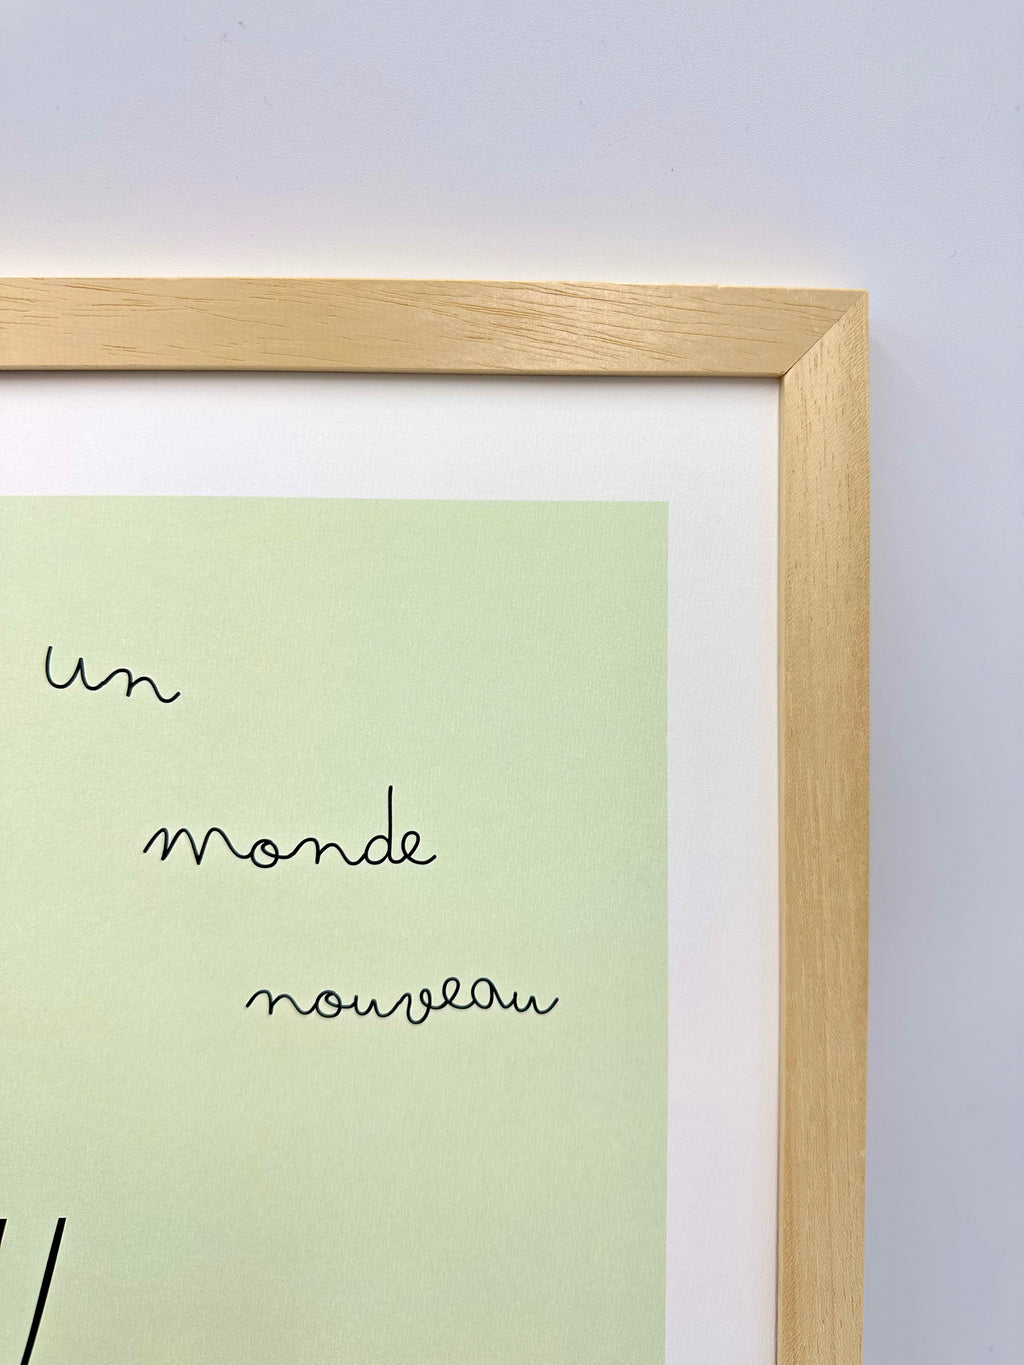 un
monde
nouveau